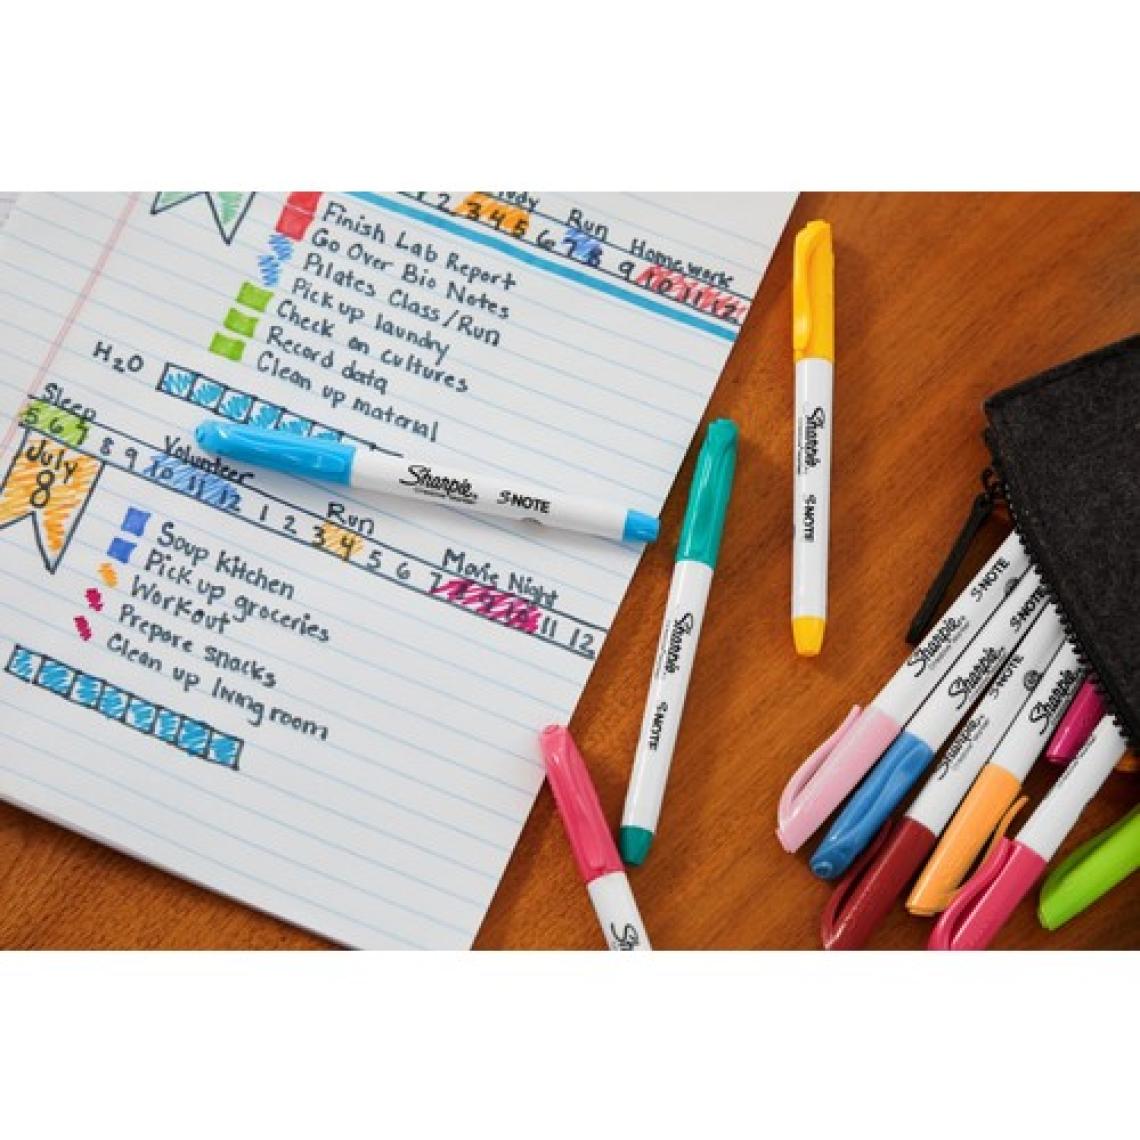 Run
Homework
1 2 3 4 5 6 7 8 9 10 11 12
Finish Lab Report
Go Over Bio Notes
Pilates Class/Run
Pick up laundry
Check on cultures
Record data
Clean up material
H2O
Sleep
Volunteer
Run
Movie Night
5 6 7 8 9 10 11 12 1 2 3 4 5 6 7 8 9 10 11 12
July
8
Soup Kitchen
Pick up groceries
Workout
Prepare snacks
Clean up living room
Sharpie S·NOTE
Sharpie S·NOTE
Sharpie S·NOTE
Sharpie S·NOTE
Sharpie S·NOTE
Sharpie S·NOTE
Sharpie